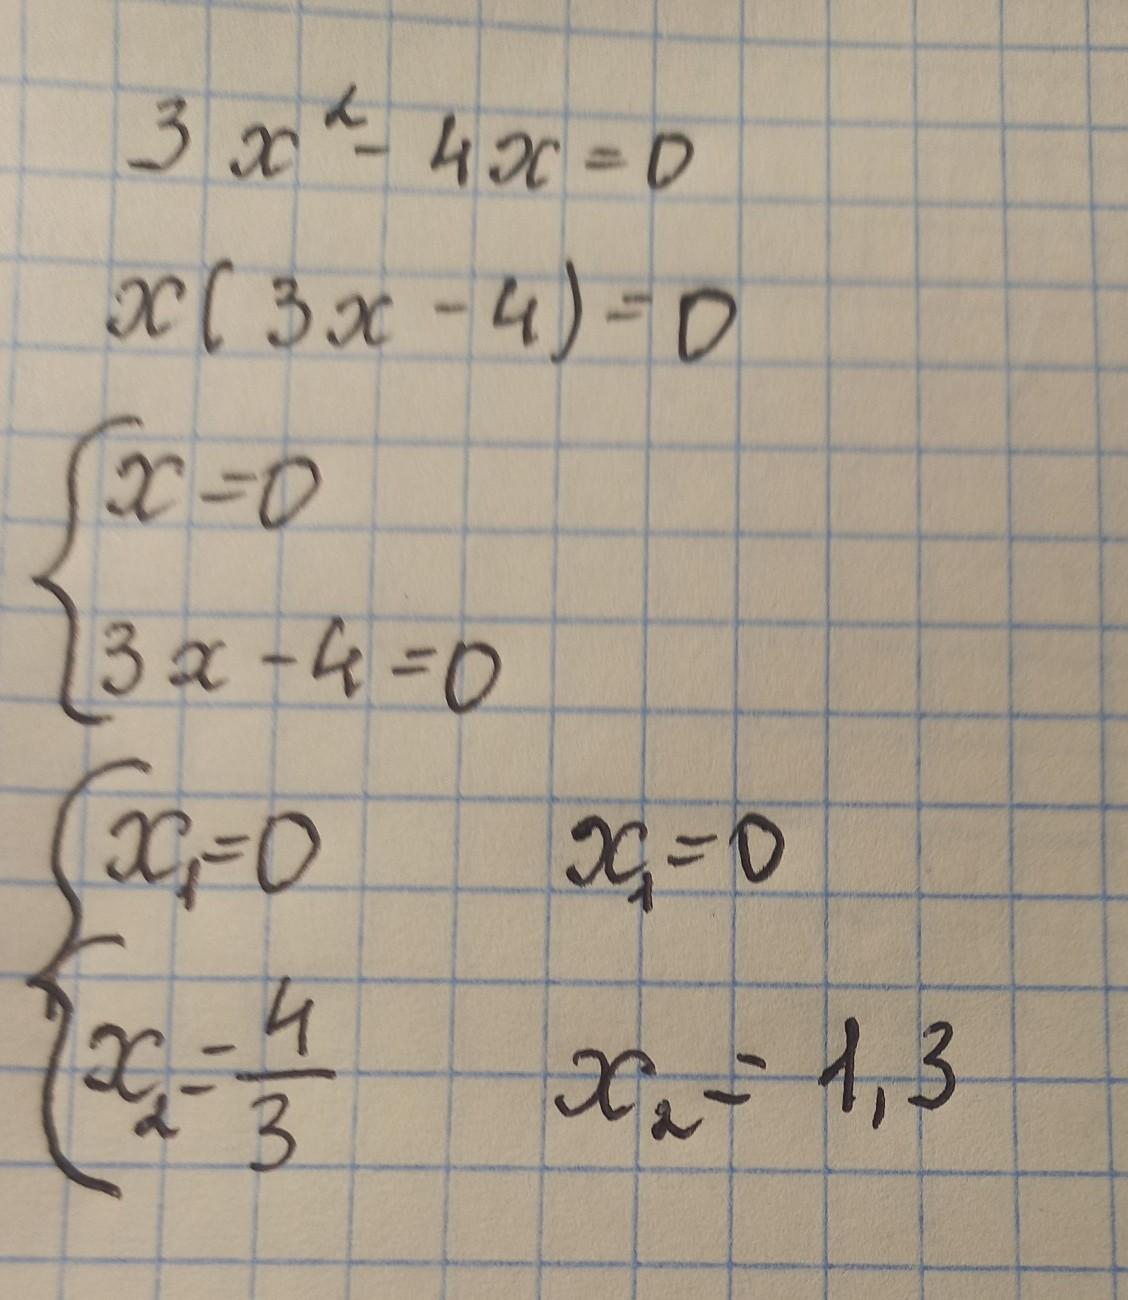 3x² - 4x = 0
x(3x - 4) = 0
{ x = 0
3x - 4 = 0
{ x₁ = 0 x₁ = 0
x₂ = 4/3 x₂ = 1,3